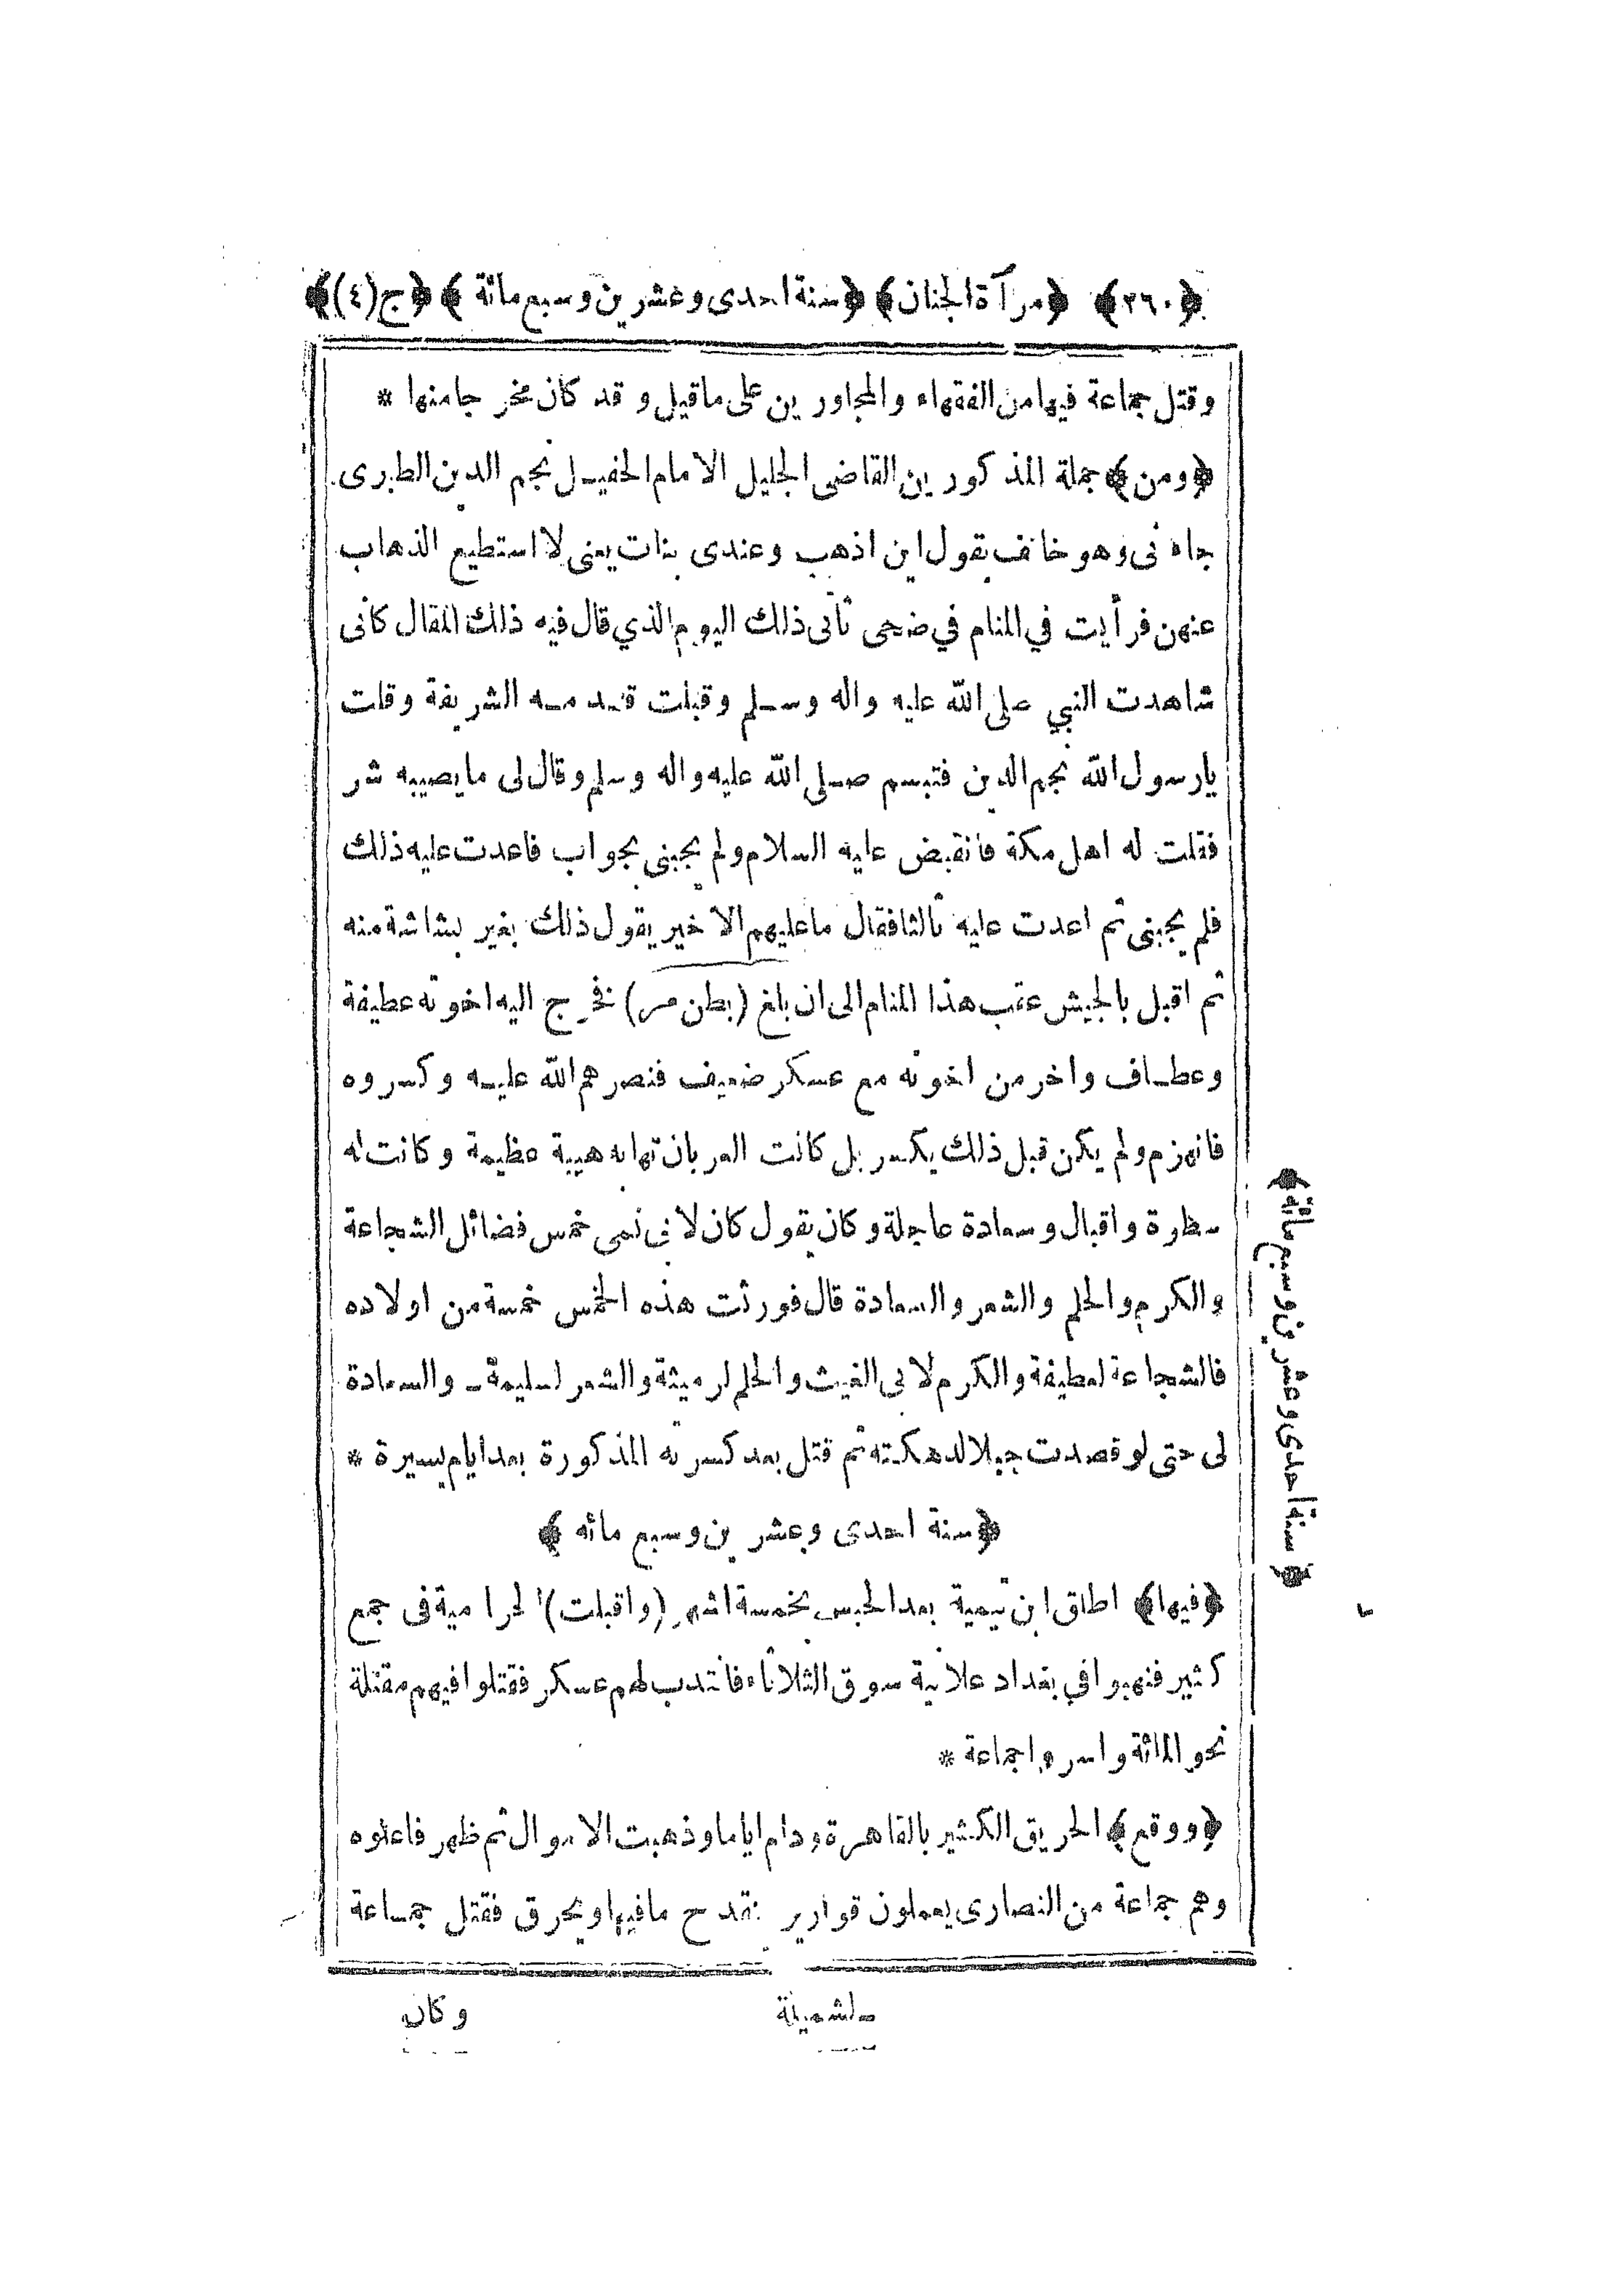 ﴿٢٦٠﴾ ﴿مرآة الجنان﴾ ﴿سنة احدى وعشرين وسبع مائة﴾ ﴿ج(٤)﴾
وقتل جماعة فيها من الفقهاء والمجاورين على ما قيل وقد كان مخرجا منها *
﴿ومن﴾ جملة المذكورين القاضى الجليل الامام الحفيل نجم الدين الطبرى
جاءنى وهو خائف يقول اين اذهب وعندى بنات يعنى لا استطيع الذهاب
عنهن فرأيت في المنام في ضحى ثانى ذلك اليوم الذي قال فيه ذلك المقال كأنى
شاهدت النبي صلى الله عليه واله وسلم وقبلت قدمه الشريفة وقلت
يارسول الله نجم الدين فتبسم صلى الله عليه واله وسلم وقال لى ما يصيبه شر
فقلت له اهل مكة فانقبض عليه السلام ولم يجبنى بجواب فاعدت عليه ذلك
فلم يجبنى ثم اعدت عليه ثالثا فقال ما عليهم الا خير يقول ذلك بغير بشاشة منه
ثم اقبل بالجيش عقب هذا المنام الى ان بلغ (بطن مر) فخرج اليه اخوته عطيفة
وعطاف واخر من اخوته مع عسكر ضعيف فنصرهم الله عليه وكسروه
فانهزم ولم يكن قبل ذلك يكسر بل كانت العربان تهابه هيبة عظيمة وكانت له
سطوة واقبال وسعادة عاجلة وكان يقول كان لابى نمى خمس فضائل الشجاعة
والكرم والحلم والشعر والسعادة قال فورثت هذه الخمس خمسة من اولاده
فالشجاعة لعطيفة والكرم لابى الغيث والحلم لرميثة والشعر لسليمة ـ والسعادة
لى حتى لو قصدت جبلا لدهكته ثم قتل بعد كسرته المذكورة بعد ايام يسيرة *
﴿سنة احدى وعشرين وسبع مائه﴾
﴿فيها﴾ اطلق ابن تيمية بعد الحبس بخمسة اشهر (واقبلت) الحرامية فى جمع
كثير فنهبوا في بغداد علانية سوق الثلاثاء فانتدب لهم عسكر فقتلوا فيهم مقتلة
نحو المائة واسروا جماعة *
﴿ووقع﴾ الحريق الكثير بالقاهرة ودام اياما وذهبت الاموال ثم ظهر فاعلوه
وهم جماعة من النصارى يعملون قوارير ينقدح ما فيها ويحرق فقتل جماعة
وكان
﴿سنة احدى وعشرين وسبع مائة﴾